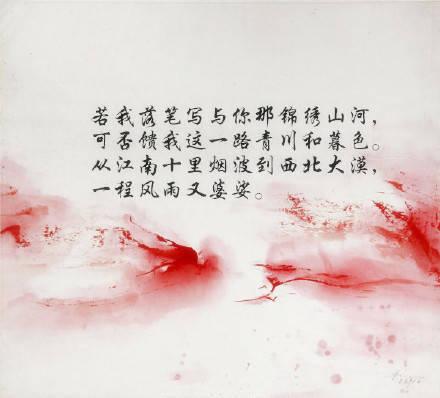 若我落笔写与你那锦绣山河，
可否馈我这一路青川和暮色。
从江南十里烟波到西北大漠，
一程风雨又婆娑。